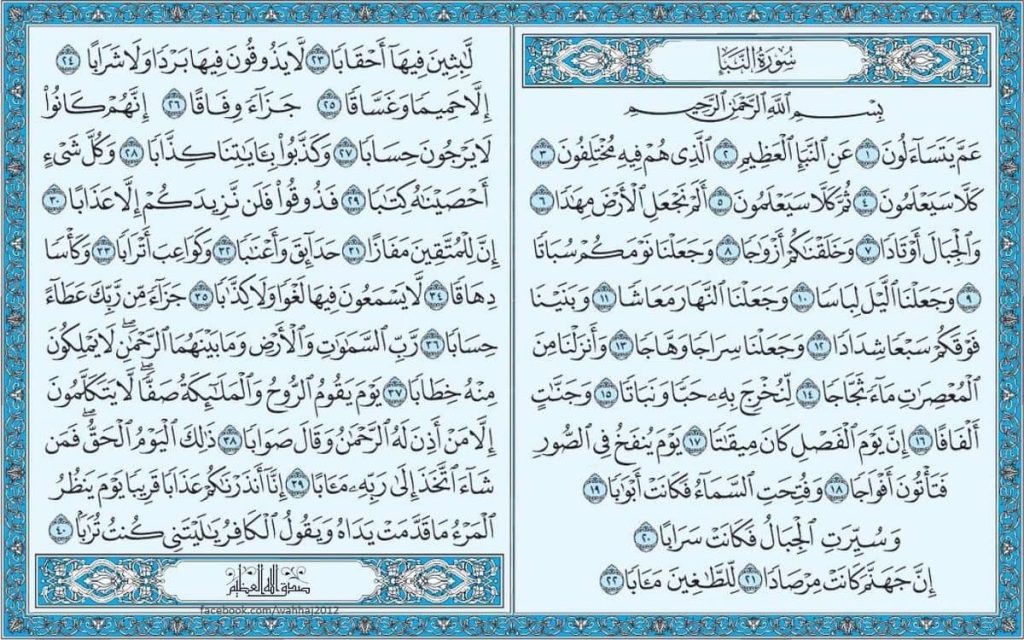 سُورَةُ النَّبَإِ
بِسْمِ اللَّهِ الرَّحْمَٰنِ الرَّحِيمِ
عَمَّ يَتَسَآءَلُونَ ١ عَنِ النَّبَإِ الْعَظِيمِ ٢ الَّذِى هُمْ فِيهِ مُخْتَلِفُونَ ٣
كَلَّا سَيَعْلَمُونَ ٤ ثُمَّ كَلَّا سَيَعْلَمُونَ ٥ أَلَمْ نَجْعَلِ الْأَرْضَ مِهَٰدًا ٦
وَالْجِبَالَ أَوْتَادًا ٧ وَخَلَقْنَٰكُمْ أَزْوَٰجًا ٨ وَجَعَلْنَا نَوْمَكُمْ سُبَاتًا
٩ وَجَعَلْنَا الَّيْلَ لِبَاسًا ١٠ وَجَعَلْنَا النَّهَارَ مَعَاشًا ١١ وَبَنَيْنَا
فَوْقَكُمْ سَبْعًا شِدَادًا ١٢ وَجَعَلْنَا سِرَاجًا وَهَّاجًا ١٣ وَأَنزَلْنَا مِنَ
الْمُعْصِرَٰتِ مَآءً ثَجَّاجًا ١٤ لِّنُخْرِجَ بِهِۦ حَبًّا وَنَبَاتًا ١٥ وَجَنَّٰتٍ
أَلْفَافًا ١٦ إِنَّ يَوْمَ الْفَصْلِ كَانَ مِيقَٰتًا ١٧ يَوْمَ يُنفَخُ فِى الصُّورِ
فَتَأْتُونَ أَفْوَاجًا ١٨ وَفُتِحَتِ السَّمَآءُ فَكَانَتْ أَبْوَٰبًا ١٩
وَسُيِّرَتِ الْجِبَالُ فَكَانَتْ سَرَابًا ٢٠
إِنَّ جَهَنَّمَ كَانَتْ مِرْصَادًا ٢١ لِّلطَّٰغِينَ مَـَٔابًا ٢٢
لَّٰبِثِينَ فِيهَآ أَحْقَابًا ٢٣ لَّا يَذُوقُونَ فِيهَا بَرْدًا وَلَا شَرَابًا ٢٤
إِلَّا حَمِيمًا وَغَسَّاقًا ٢٥ جَزَآءً وِفَاقًا ٢٦ إِنَّهُمْ كَانُوا۟
لَا يَرْجُونَ حِسَابًا ٢٧ وَكَذَّبُوا۟ بِـَٔايَٰتِنَا كِذَّابًا ٢٨ وَكُلَّ شَىْءٍ
أَحْصَيْنَٰهُ كِتَٰبًا ٢٩ فَذُوقُوا۟ فَلَن نَّزِيدَكُمْ إِلَّا عَذَابًا ٣٠
إِنَّ لِلْمُتَّقِينَ مَفَازًا ٣١ حَدَآئِقَ وَأَعْنَٰبًا ٣٢ وَكَوَاعِبَ أَتْرَابًا ٣٣ وَكَأْسًا
دِهَاقًا ٣٤ لَّا يَسْمَعُونَ فِيهَا لَغْوًا وَلَا كِذَّٰبًا ٣٥ جَزَآءً مِّن رَّبِّكَ عَطَآءً
حِسَابًا ٣٦ رَّبِّ السَّمَٰوَٰتِ وَالْأَرْضِ وَمَا بَيْنَهُمَا الرَّحْمَٰنِ ۖ لَا يَمْلِكُونَ
مِنْهُ خِطَابًا ٣٧ يَوْمَ يَقُومُ الرُّوحُ وَالْمَلَٰٓئِكَةُ صَفًّا ۖ لَّا يَتَكَلَّمُونَ
إِلَّا مَنْ أَذِنَ لَهُ الرَّحْمَٰنُ وَقَالَ صَوَابًا ٣٨ ذَٰلِكَ الْيَوْمُ الْحَقُّ ۖ فَمَن
شَآءَ اتَّخَذَ إِلَىٰ رَبِّهِۦ مَـَٔابًا ٣٩ إِنَّآ أَنذَرْنَٰكُمْ عَذَابًا قَرِيبًا يَوْمَ يَنظُرُ
الْمَرْءُ مَا قَدَّمَتْ يَدَاهُ وَيَقُولُ الْكَافِرُ يَٰلَيْتَنِى كُنتُ تُرَٰبًۢا ٤٠
صدق الله العظيم
facebook.com/wahhaj2012